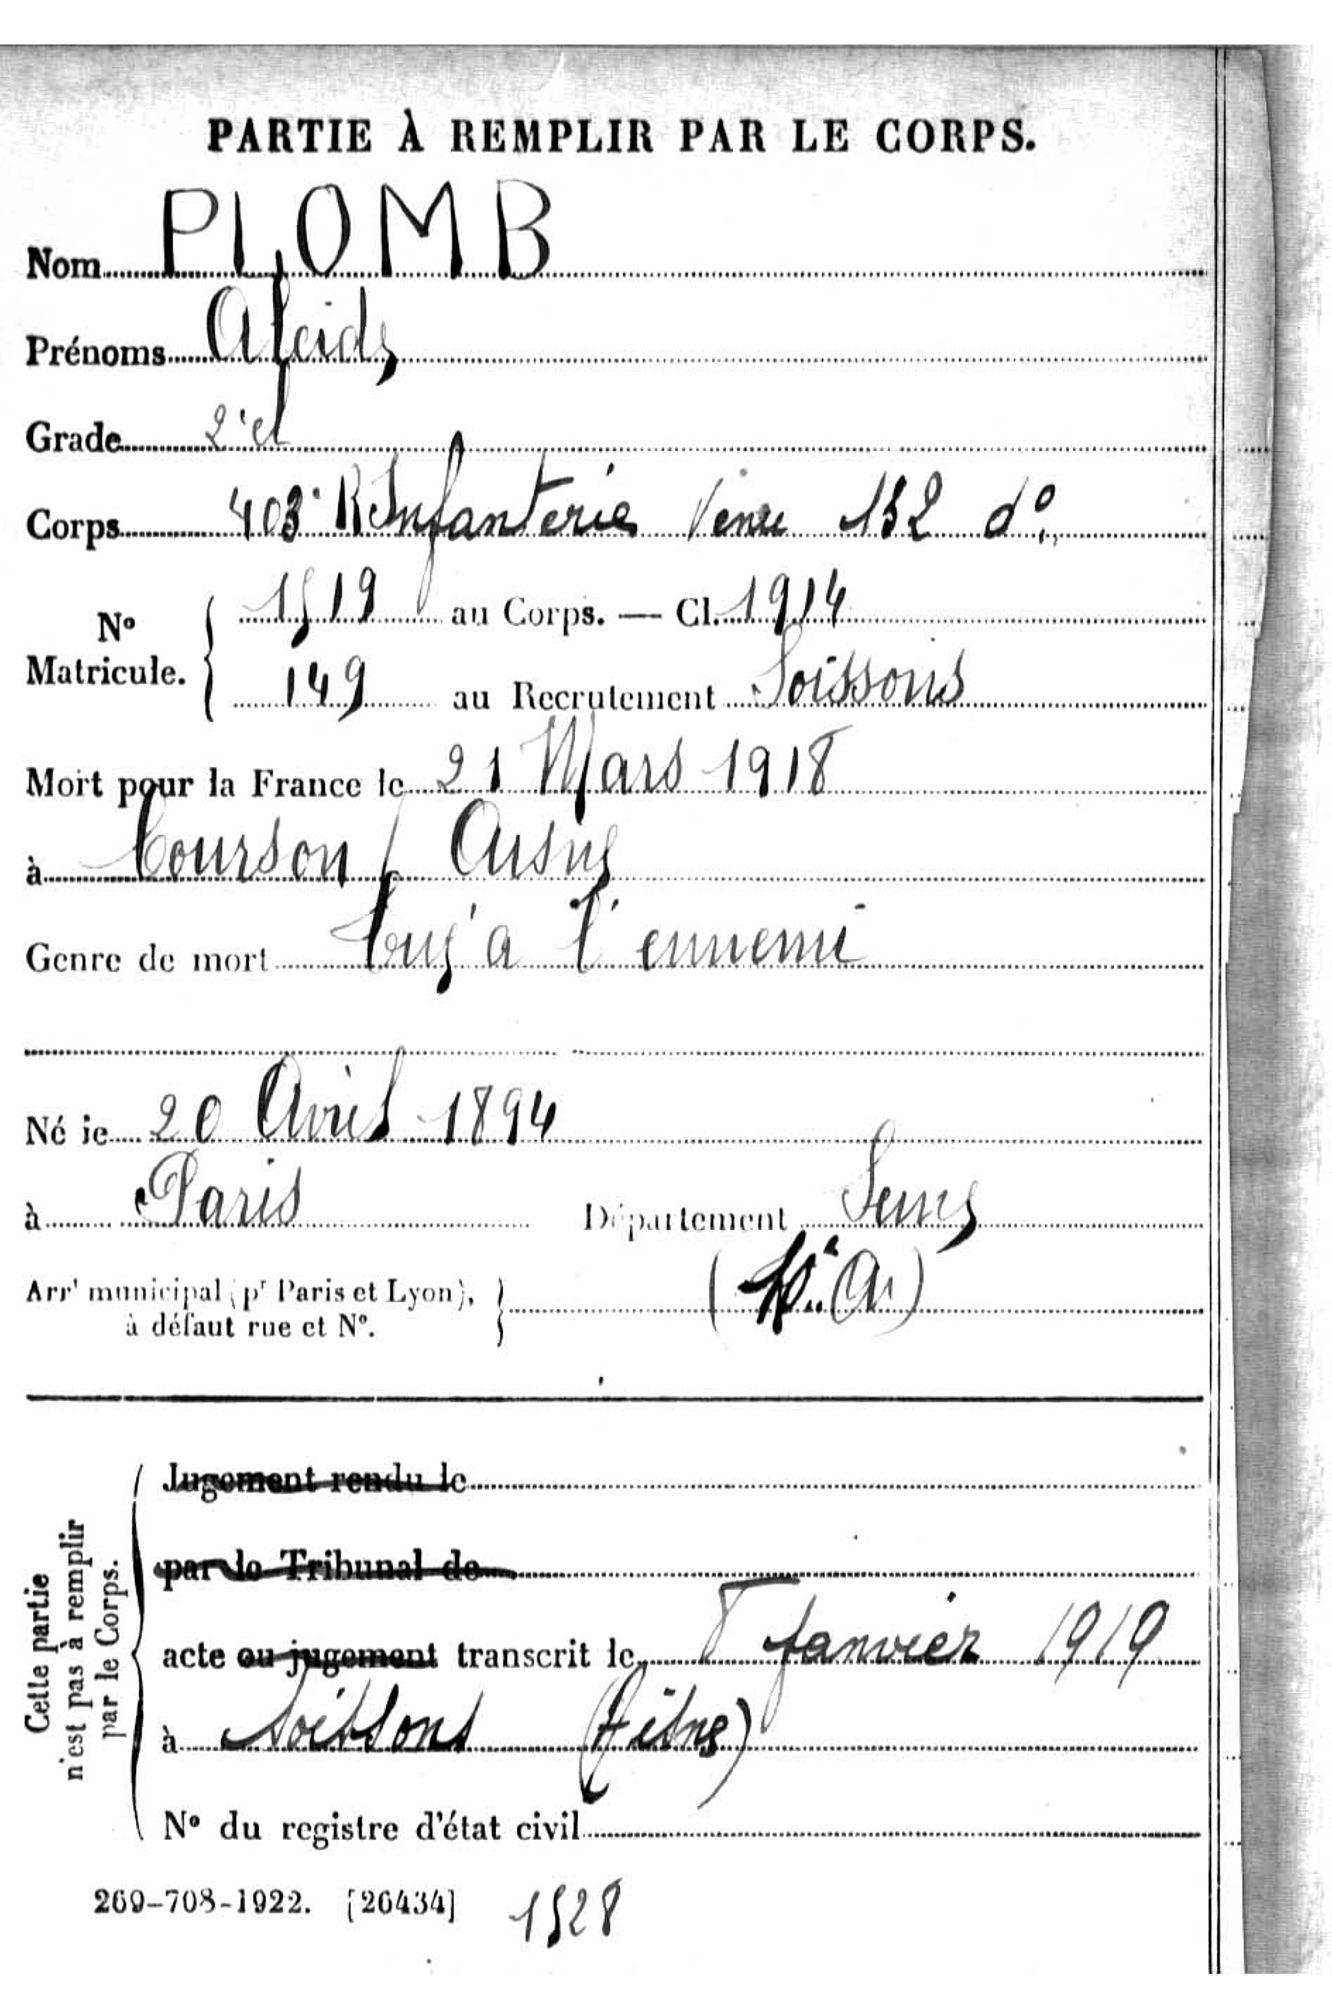 PARTIE À REMPLIR PAR LE CORPS.
Nom PLOMB
Prénoms Alcide
Grade 2e cl
Corps 403e R Infanterie Venu 132 do
No Matricule. 1519 au Corps. — Cl. 1914
149 au Recrutement Soissons
Mort pour la France le 21 Mars 1918
à Courson Aisne
Genre de mort tué à l'ennemi
Né le 20 Avril 1894
à Paris Département Seine
Arrt municipal (pr Paris et Lyon), à défaut rue et No. ( Ar)
Jugement rendu le
par le Tribunal de
acte ou jugement transcrit le 8 Janvier 1919
à Soissons (Aisne)
No du registre d'état civil
Cette partie n'est pas à remplir par le Corps.
269-708-1922. [26434] 1528